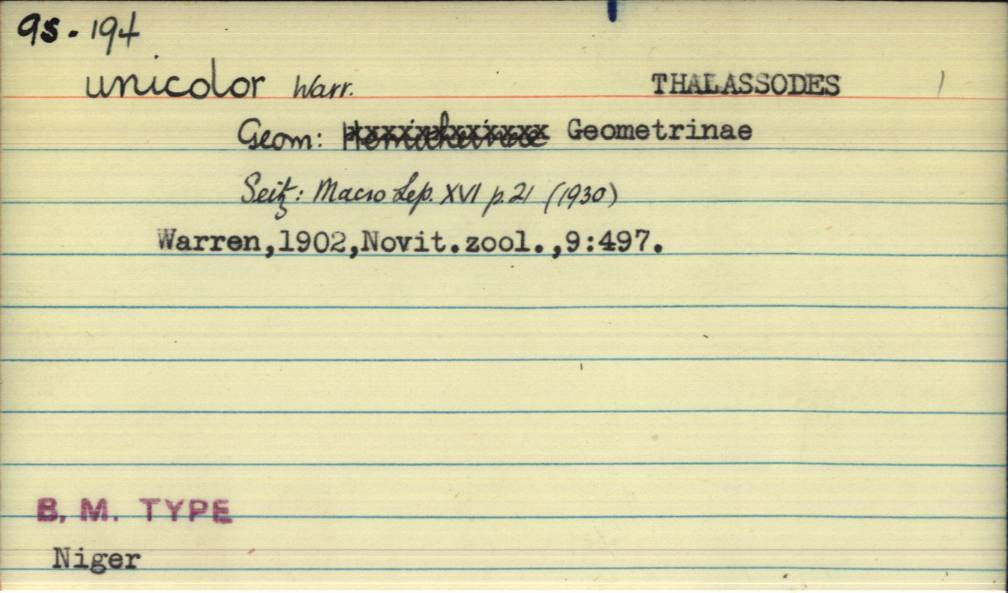 9s. 194
unicolor Warr. THALASSODES 1
Geom: Hemitheinae Geometrinae
Seitz: Macro Lep. XVI p.21 (1930)
Warren,1902,Novit.zool.,9:497.
B. M. TYPE
Niger